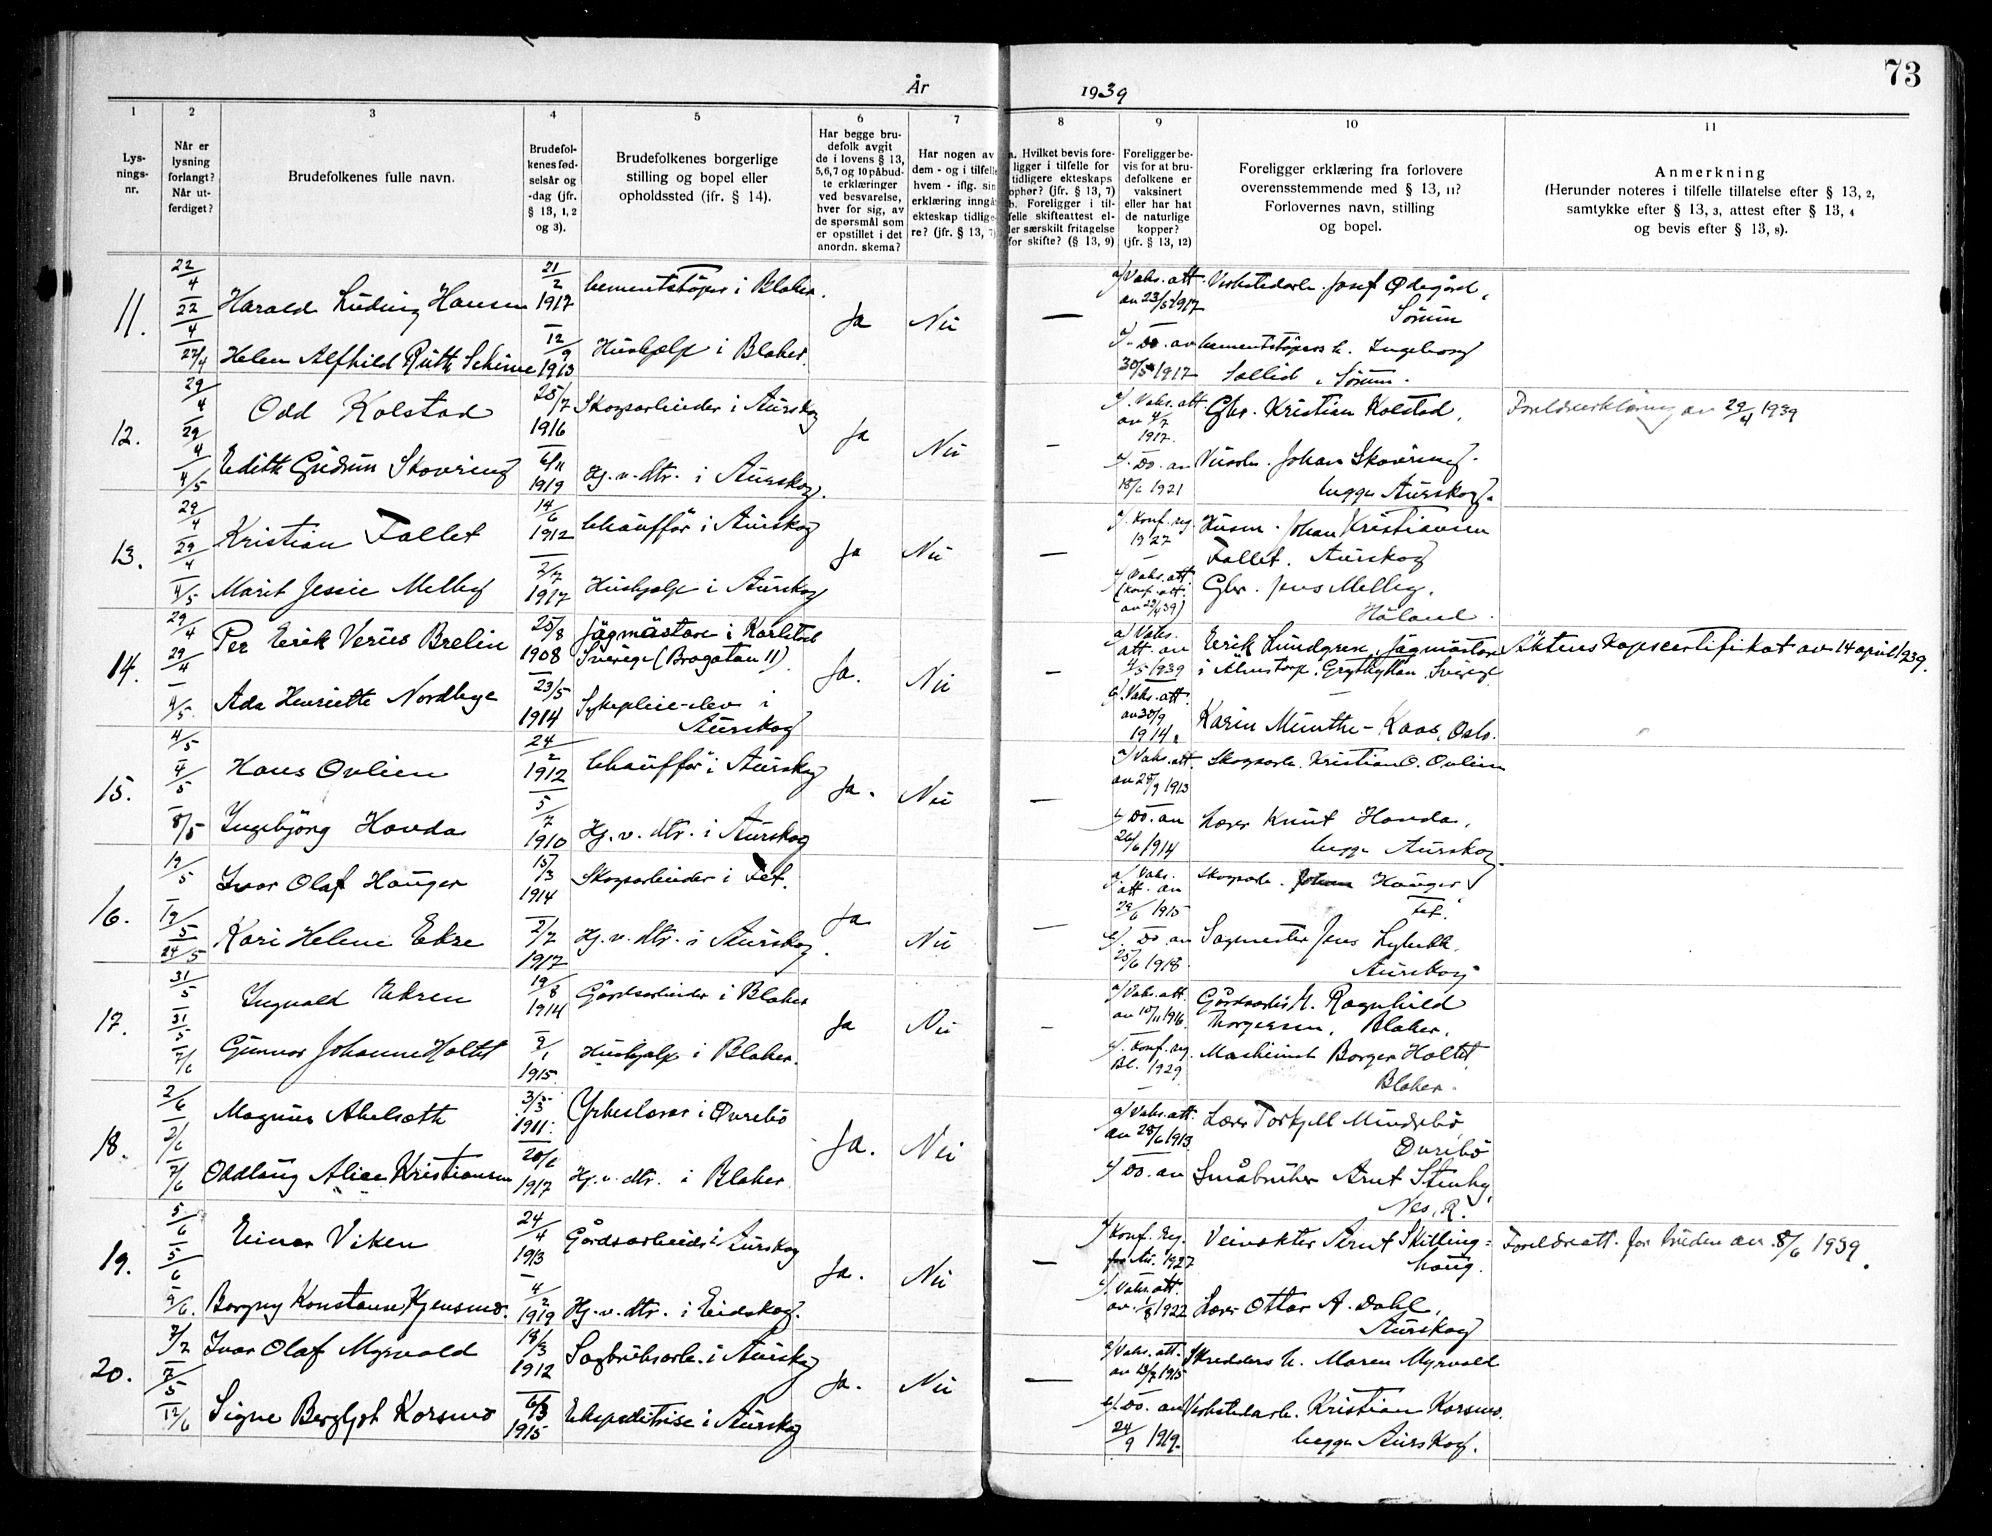 73
År 1939
1 2 3 4 5 6 7 8 9 10 11
Lys-
nings-
nr.
Når er
lysning
forlangt?
Når ut-
ferdiget?
Brudefolkenes fulle navn.
Brudefol-
kenes fød-
selsår og
-dag (jfr.
§ 13, 1, 2
og 3).
Brudefolkenes borgerlige
stilling og bopel eller
opholdssted (jfr. § 14).
Har begge bru-
defolk avgit
de i lovens § 13,
5,6,7 og 10 påbud-
te erklæringer
ved besvarelse,
hver for sig, av
de spørsmål som
er opstillet i det
anordn. skema?
Har nogen av
dem - og i tilfelle
hvem - iflg. sin
erklæring inngå
ekteskap tidlige-
re? (jfr. § 13, 7)
a. Hvilket bevis fore-
ligger i tilfelle for
tidligere ekteskaps
ophør? (jfr. § 13, 7)
b. Foreligger i til-
felle skifteattest el-
ler særskilt fritagelse
for skifte? (§ 13, 9)
Foreligger be-
vis for at bru-
defolkene er
vaksinert
eller har hat
de naturlige
kopper?
(jfr. § 13, 12)
Foreligger erklæring fra forlovere
overensstemmende med § 13, 11?
Forlovernes navn, stilling
og bopel.
Anmerkning
(Herunder noteres i tilfelle tillatelse efter § 13, 2,
samtykke efter § 13, 3, attest efter § 13, 4
og bevis efter § 13, 8).
11. 22/4 22/4 27/4
Harald Ludvig Hansen 21/2 1917 Cementstøper i Blaker.
Helen Alfhild Ruth 12/9 1913 Hushjelp i Blaker.
Ja Nei —
a) Vaks. att. av 23/5 1917 Verkstedarb. Josef Ødegård,
Sørum
Do. av 30/5 1917 Cementstøpers h. Ingeborg
Sollid, Sørum.
12. 29/4 29/4 4/5
Odd Kolstad 25/7 1916 Skogsarbeider i Aurskog
Edith Gudrun Skovring 6/11 1919 Hj. v. dtr. i Aurskog.
Ja Nei —
Vaks. att. av 4/7 1917. Gbr. Kristian Kolstad,
Do. av 18/6 1921 Johan Skovring.
begge Aurskog.
Foreldreerklæring av 29/4 1939
13. 29/4 29/4 4/5
Kristian Fallet 14/6 1912 Chauffør i Aurskog
Marit Jessie Melby 2/7 1917 Hushjelp i Aurskog
Ja Nei —
Konf. reg. 1927 Husm. Johan Kristiansen
Fallet. Aurskog
Vaks. att. (konf. att. av 29/4 39) Gbr. Jens Melby,
Høland.
14. 29/4 29/4 4/5
Per Erik Verus Brelin 25/8 1908 Jägmästare i Karlstad
Sverige (Brogatan 11)
Ada Henriette Nordbye 23/5 1914 Sykepleie-elev i
Aurskog
Ja. Nei —
a) Vaks. att. av 4/5 1939 Erik Lundgren, Jägmästare
i Älvstorp, Grythyttan, Sverige
b) Vaks. att. av 30/9 1914. Karin Munthe-Kaas, Oslo.
Äktenskapscertifikat av 14 april 1939.
15. 4/5 4/5 8/5
Hans Ovlien 24/2 1912 Chauffør i Aurskog
Ingebjørg Hovda 5/7 1910 Hj. v. dtr. i Aurskog
Ja. Nei —
a) Vaks. att. av 29/9 1913 Skogsarb. Kristian O. Ovlien
Do. av 26/6 1914 Lærer Knut Hovda,
begge Aurskog.
16. 19/5 19/5 24/5
Ivar Olaf Hauger 15/3 1914 Skogsarbeider i Fet.
Kari Helene Ekre 2/7 1917 Hj. v. dtr. i Aurskog
Ja Nei —
a) Vaks. att. av 29/6 1915 Skogsarb. Johan Hauger
Fet.
b) Do av 25/6 1918 Sagmester Jens Lybekk.
Aurskog
17. 31/5 31/5 7/6
Ingvald Ekren 19/8 1914 Gårdsarbeider i Blaker
Gunvor Johanne Holtet 9/1 1915. Hushjelp i Blaker.
Ja Nei —
a) Vaks. att. av 15/11 1916. Gårdsarb. h. Ragnhild
Thorgersen, Blaker.
Konf. reg. Bl. 1929 Maskinist Borger Holtet,
Blaker.
18. 2/6 2/6 7/6
Magnus Abelseth 3/3 1911. Yrkeslærer i Øvrebø
Oddlaug Alice Kristiansen 20/6 1917 Hj. v. dtr. i Blaker
Ja. Nei
a) Vaks. att. av 28/6 1913 Lærer Torkjell Mindrebø
Øvrebø
Do. av Småbruker Arnt Stenby,
Nes, R.
19. 5/6 5/6 9/6.
Einar Viken 24/4 1913 Gårdsarbeider i Aurskog
Borgny Konstanse Kjensmo. 4/2 1919 Hj. v. dtr. i Eidskog.
Ja. Nei —
Konf. reg. for Au. 1927 Veivokter Arnt Skilling-
haug.
Vaks. att. av. 1/8 1922 Lærer Ottar A. Dahl,
Aurskog
Foreldreatt. for bruden av 8/6 1939.
20. 7/2 7/5 12/6
Ivar Olaf Myrvold 18/3 1912 Sagbruksarb. i Aurskog
Signe Bergljot Korsmo 6/3 1915 Ekspeditrise i Aurskog
Ja. Nei —
a) Vaks. att. av 13/7 1915 Skredders h. Maren Myrvold
b) Do. av 24/9 1919. Verkstedarb. Kristian Korsmo.
begge Aurskog.